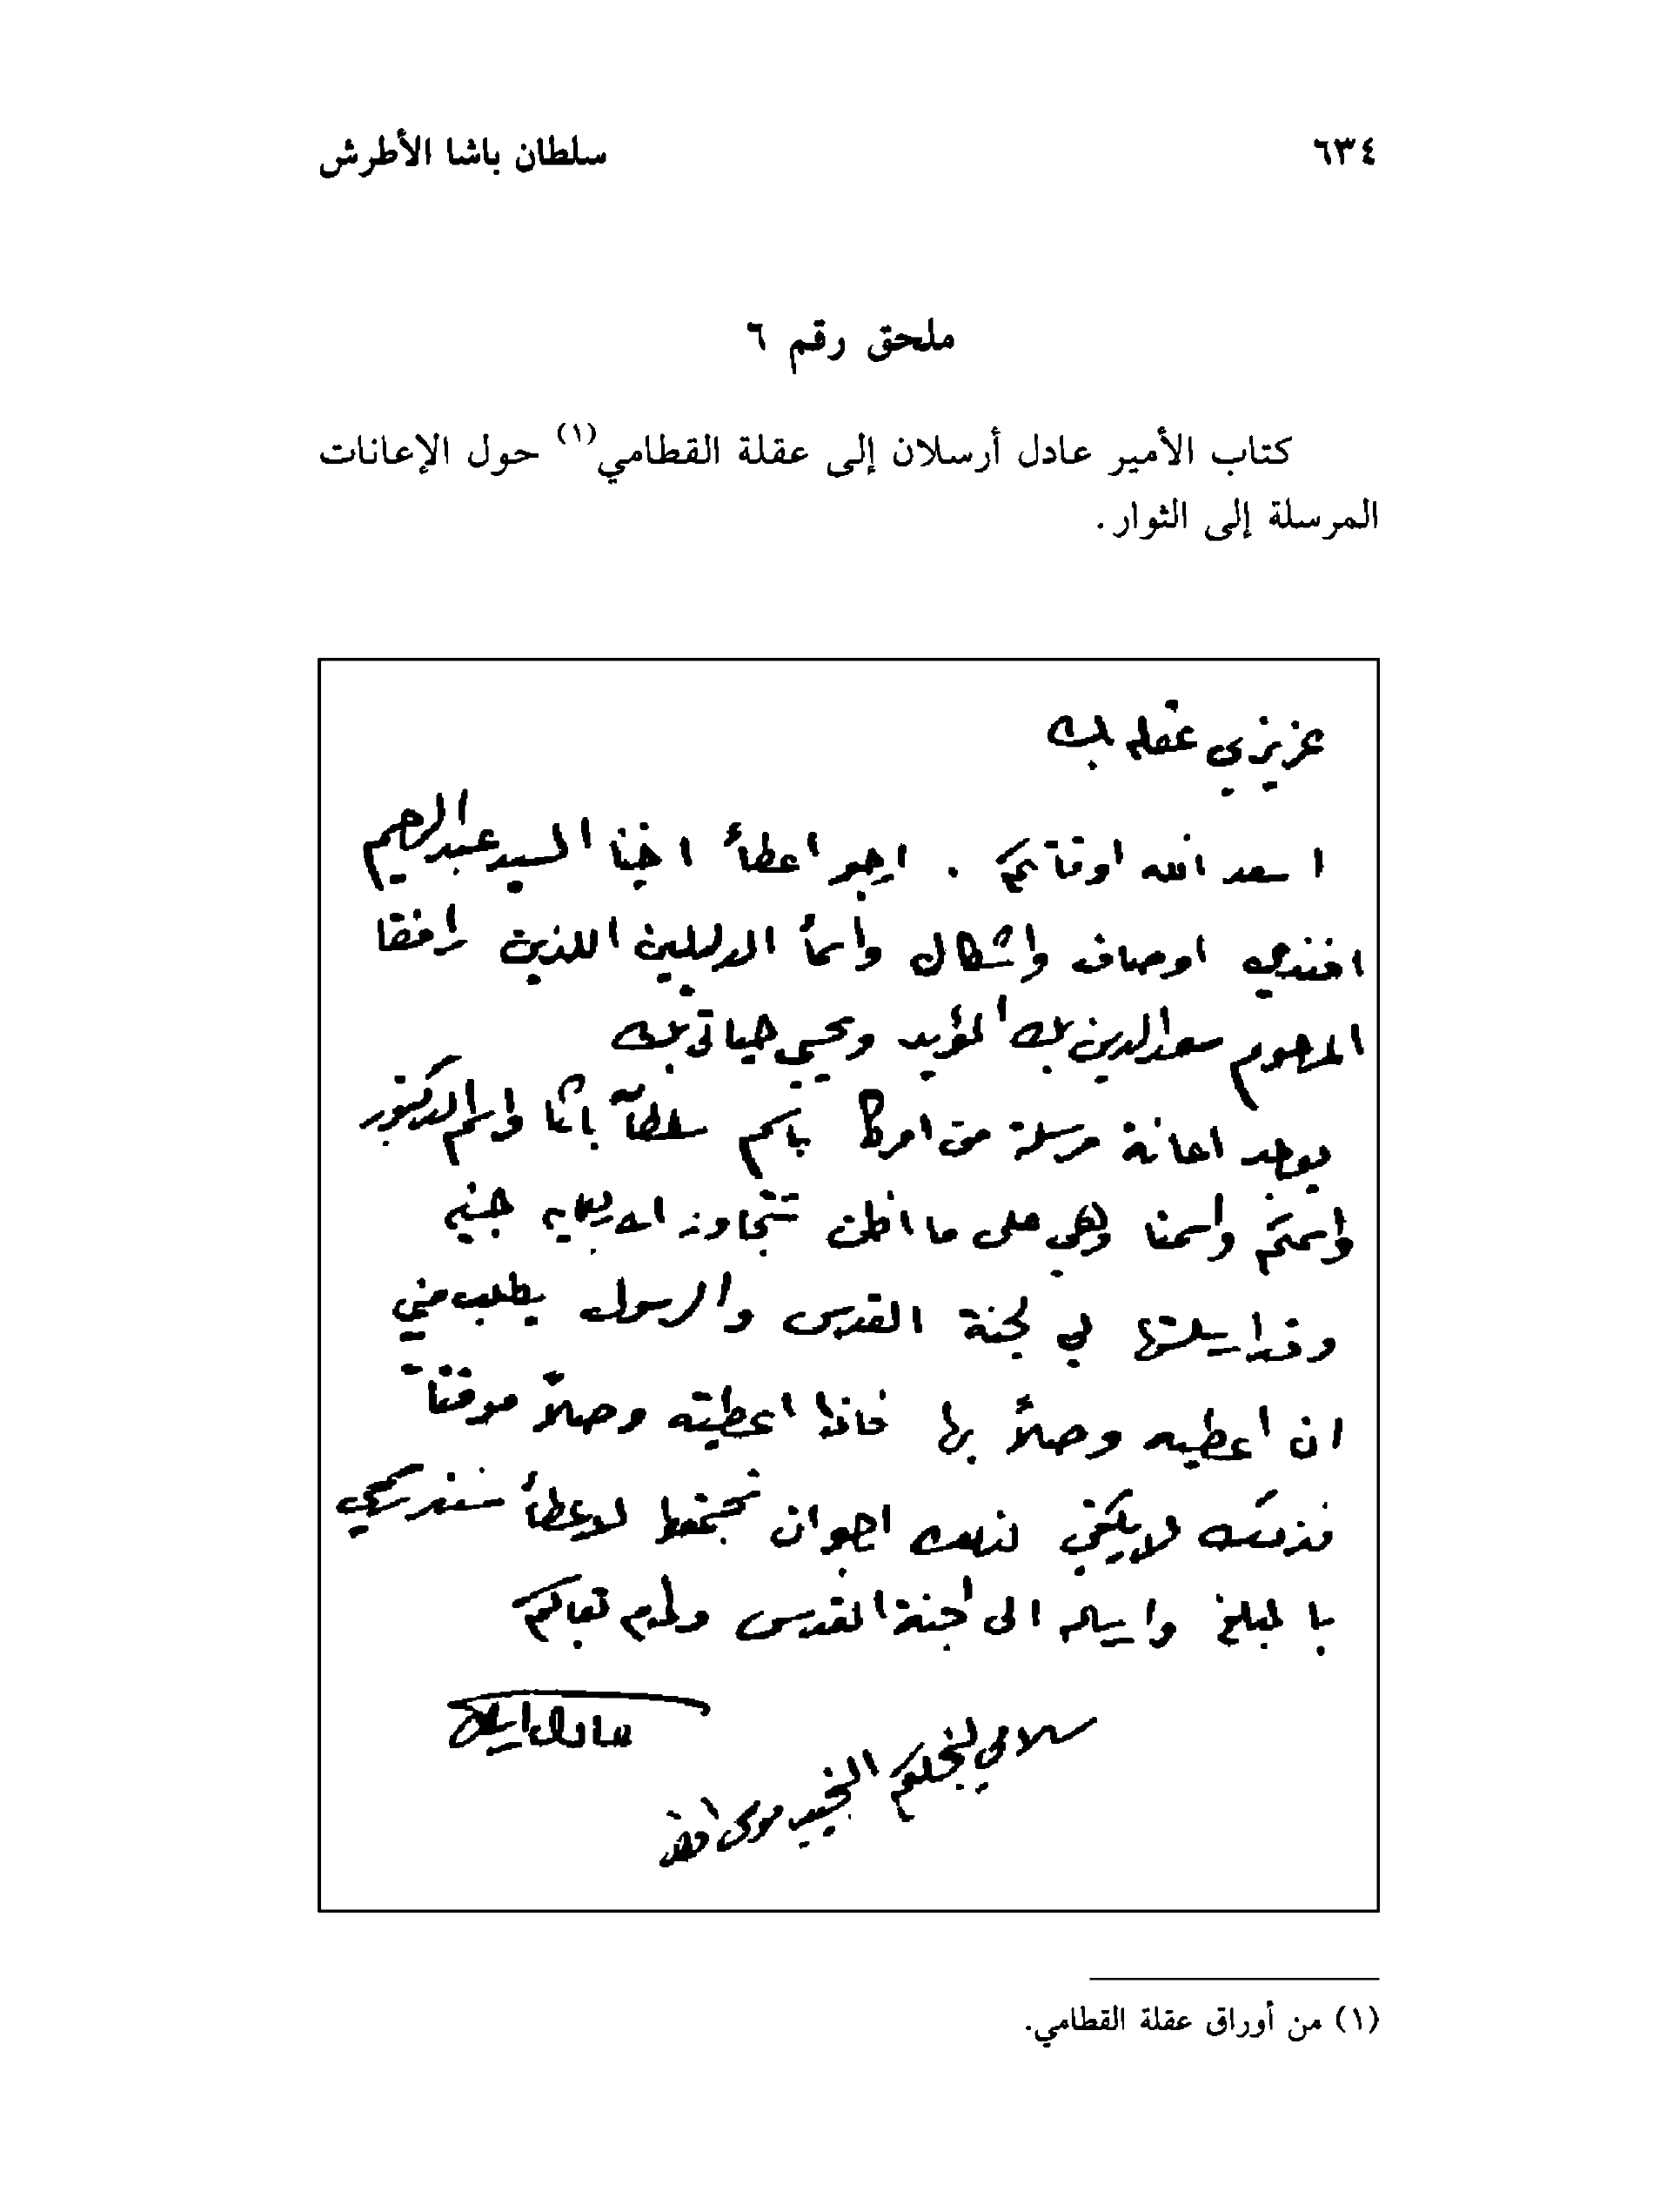 ٦٣٤
سلطان باشا الأطرش
ملحق رقم ٦
كتاب الأمير عادل أرسلان إلى عقلة القطامي(١) حول الإعانات
المرسلة إلى الثوار.
عزيزي عقله بك
اسعد الله اوقاتكم . ارجو اعطاأ اخينا السيد عبدالرحيم
افندي اوصاف واشكال واسمأ الدليلين اللذين رافقا
المرحوم سعدالدين بك المؤيد ويحيى حياتي بك
يوجد اعانة مرسلة من امركا باسم سلطان باشا واسم الدكتور
واسمكم واسمنا وهي على ما اظن تتجاوز جنيه
وقد ارسلتها لي لجنة القدس والرسول يطلب مني
ان اعطيه وصلاً بها فاذا اعطيته وصلاً موقتاً
فذلك لا يكفي لذلك ارجو ان نجتمع لاعطأ سند رسمي
بالمبلغ وارساله الى لجنة القدس ودام بقاكم
عادل ارسلان
سلامي لنجلكم النجيب موسى افندي
(١) من أوراق عقلة القطامي.